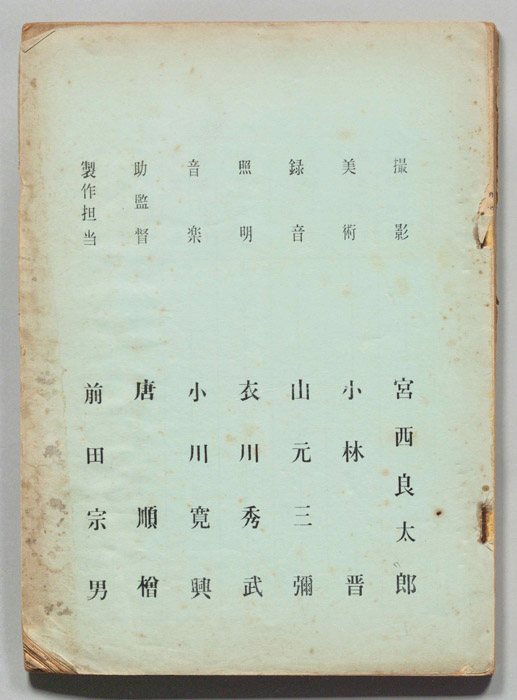 撮影 宮西良太郎
美術 小林晋
録音 山元三彌
照明 衣川秀武
音楽 小川寛興
助監督 唐順檜
製作担当 前田宗男